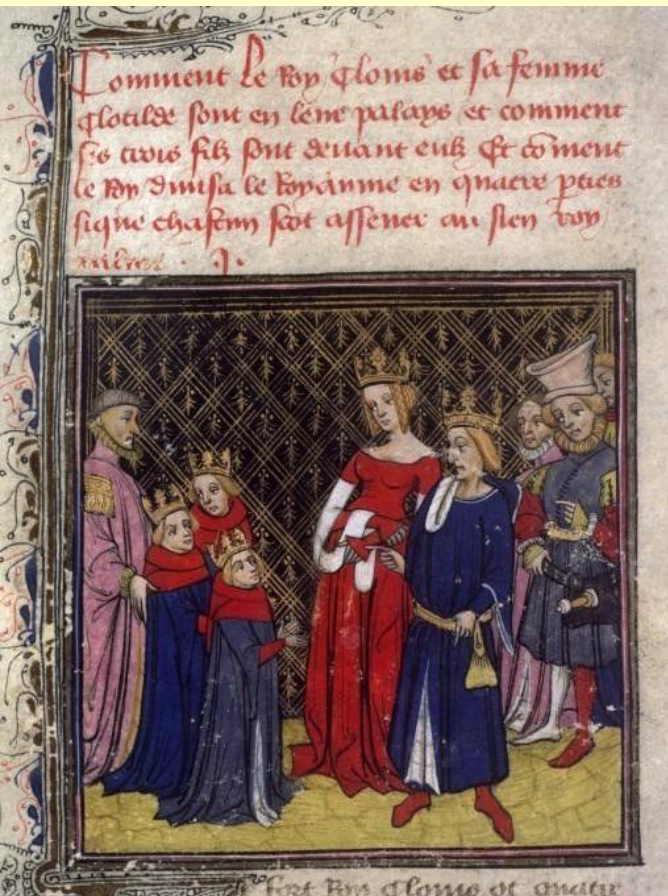 Comment le Roy Clouis et sa femme
Clotilde sont en leur palays et comment
ses trois filz sont deuant eulz Et cōment
le Roy diuisa le Royaume en quatre pties
sique chascun scot assener au sien
.I.
fort Roy Clouis ot quatre